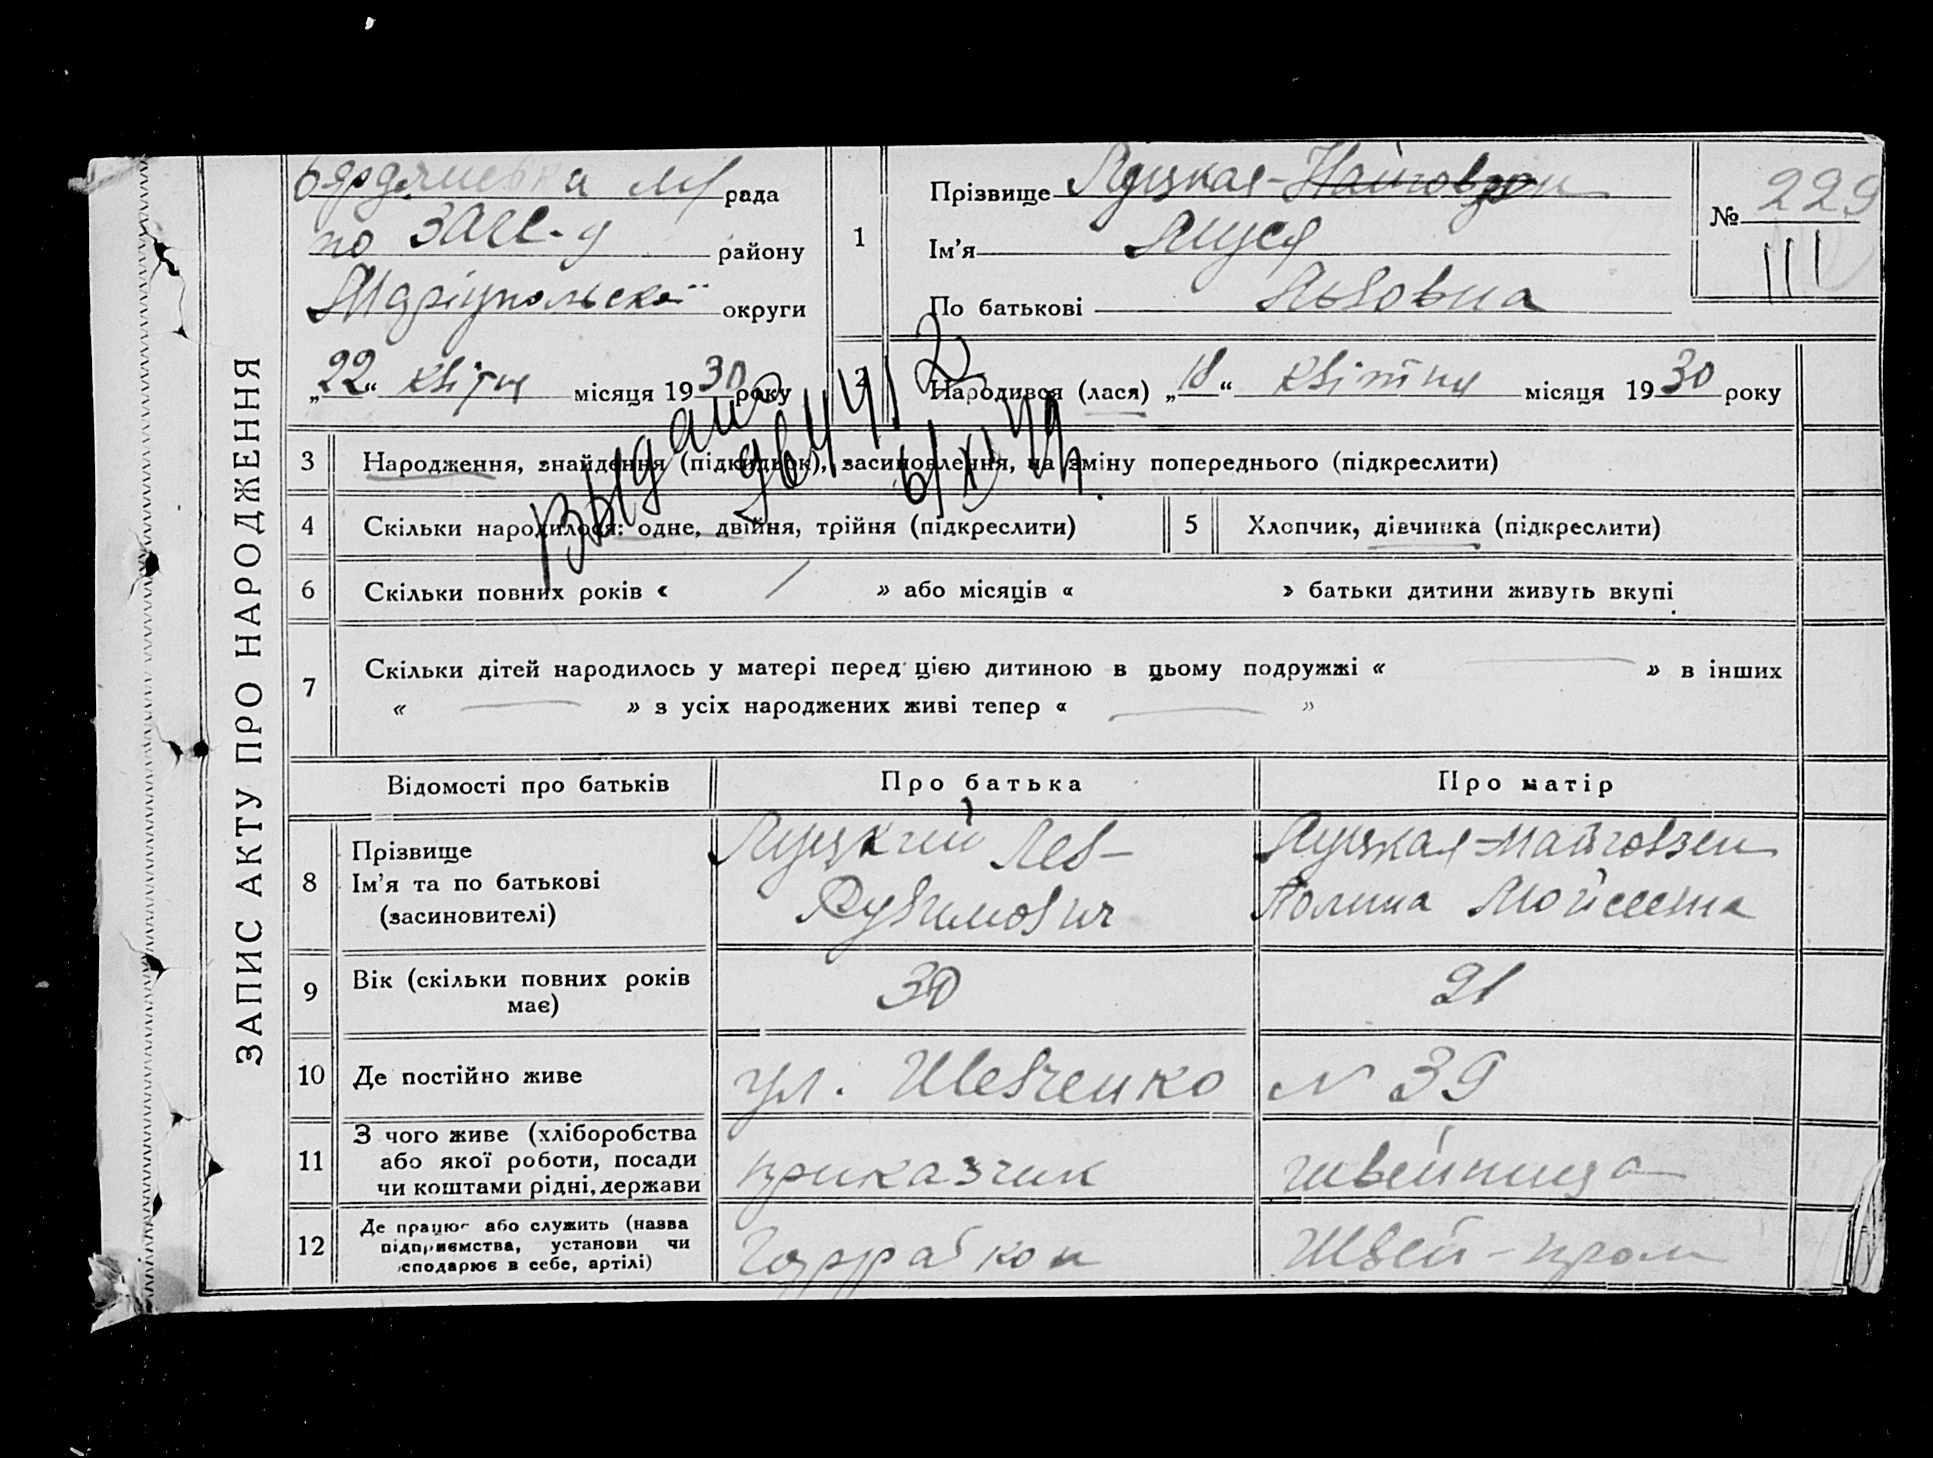 ЗАПИС АКТУ ПРО НАРОДЖЕННЯ
рада
по ЗАГС-у району
Маріупольської округи
„22“ квітня місяця 1930 року
1
Прізвище Луцкая-
Ім'я Люся
По батькові Львовна
№ 229
III
2 Народився (лася) „18“ квітня місяця 1930 року
3 Народження, знайдення (підкидьок), засиновлення, на зміну попереднього (підкреслити)
4 Скільки народилося: одне, двійня, трійня (підкреслити)
5 Хлопчик, дівчинка (підкреслити)
6 Скільки повних років « / » або місяців « » батьки дитини живуть вкупі
7 Скільки дітей народилось у матері перед цією дитиною в цьому подружжі « — » в інших
« — » з усіх народжених живі тепер « — »
Відомості про батьків
Про батька
Про матір
8
Прізвище
Ім'я та по батькові
(засиновителі)
Луцкий Лев
Рувимович
Луцкая-
Полина Мойсеевна
9
Вік (скільки повних років
має)
30
21
10 Де постійно живе
ул. Шевченко
№ 39
11
З чого живе (хліборобства
або якої роботи, посади
чи коштами рідні, держави
приказчик
швейница
12
Де працює або служить (назва
підприємства, установи чи
сподарює в себе, артілі)
Горрабкоп
Швей-пром